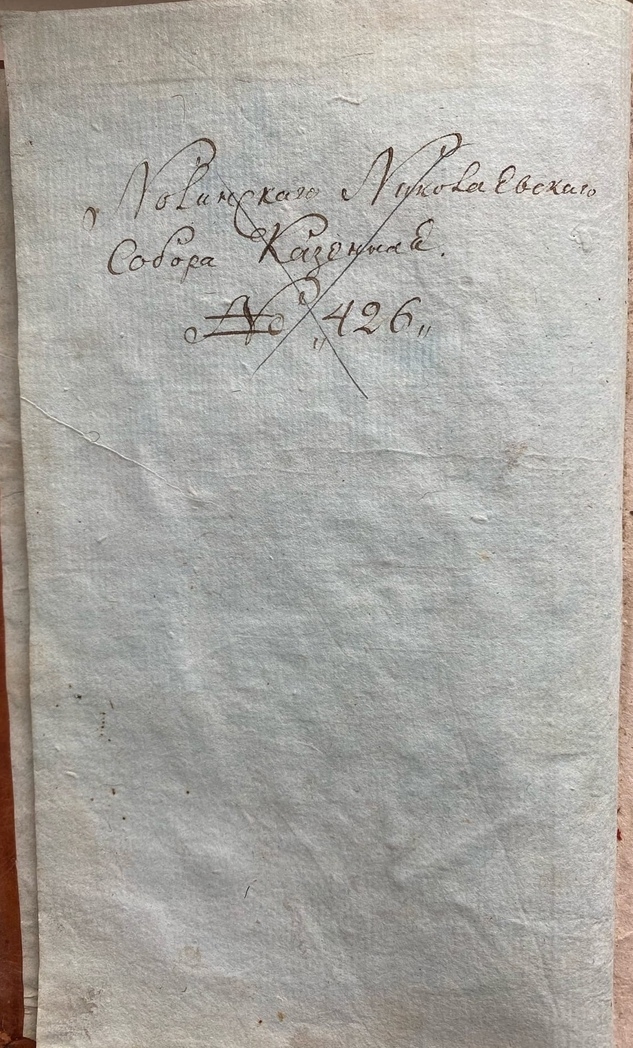 Новинскаго Николаевскаго
Собора Казенная.
№ „426„